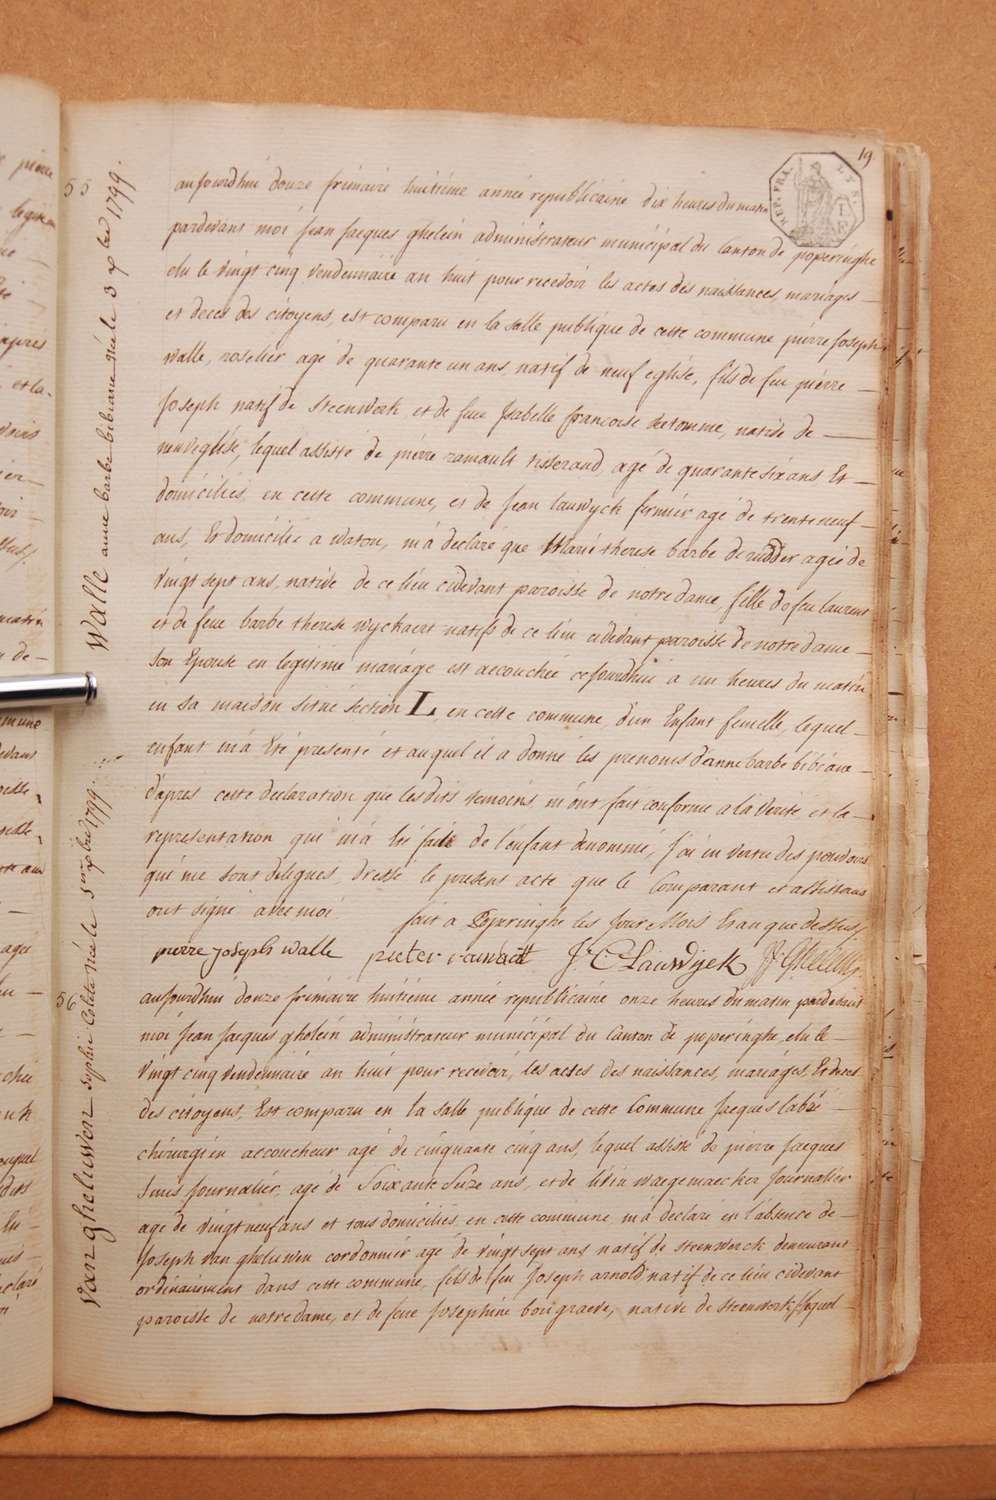 19
REP. FRA.
55
Walle anne barbe bibiane née le 3 xbre 1799.
aujourdhui douze frimaire huitiéme année republicaine dix heures du matin
pardevant moi Jean Jacques ghelein administrateur municipal du canton de poperinghe
elu le vingt cinq vendemiaire an huit pour recevoir les actes des naissances, mariages
et deces des citoyens, est comparu en la salle publique de cette commune pierre Joseph
walle, agé de quarante un ans, natif de neuf eglise, fils de feu pierre
Joseph natif de steenwerk et de feue Isabelle francoise natide de
neuveglise, lequel assisté de pierre ramault tisserand, agé de quarante six ans Et
domiciliés en cette commune, et de Jean lauwyck fermier agé de trente neuf
ans, Et domicilié a watou, m'a declaré que Marie therese barbe deridder ageé de
vingt sept ans, native de ce lieu cidevant paroisse de notre dame, fille de feu laurent
et de feue barbe therese wyckaert natifs de ce lieu cidevant paroisse de notre dame
son Epouse en legitime mariage est accouchée cejourdhui a un heures du matin
en sa maison sitné séction L, en cette commune d'un Enfant femelle, lequel
enfant m'a été presenté et auquel il a donné les prenoms d'anne barbe bibiane
d'apres cette declaration que lesdits temoins m'ont fait conforme a la verité et la
representation qui m'a été faite de l'enfant denommé, j'ai en vertu des pouvoirs
qui me sont delegues, dressé le present acte que le Comparant et assistans
ont signé avec moi. fait a Poperinghe les Jour Mois Et an que dessus
pierre joseph walle pieter ramault J: C Lauwyck JJ Ghelein
56
Van gheluwen Sophie Colete née le 3 xbre 1799
aujourdhui douze frimaire huitiéme année republicaine onze heures du matin pardevant
moi Jean Jacques ghelein administrateur municipal du Canton de poperinghe, elu le
vingt cinq vendemiaire an huit pour recevoir, les actes des naissances, mariages, Et deces
des citoyens, Est comparu en la salle publique de cette Commune Jacques labré
chirurgien accoucheur agé de cinquante cinq ans, lequel assisté de pierre Jacques
Journalier, agé de Soixante Seize ans, et de livin waegemaecker Journalier
agé de vingt neuf ans et tous domiciliés, en cette commune, m'a declaré en l'absence de
Joseph van gheluwen cordonnier agé de vingt sept ans natif de steenwerck demeurant
ordinairement dans cette commune, fils de feu Joseph arnold natif de ce lieu cidevant
paroisse de notre dame, et de feue Josephine bourgraeve, native de steenwerk, lequel